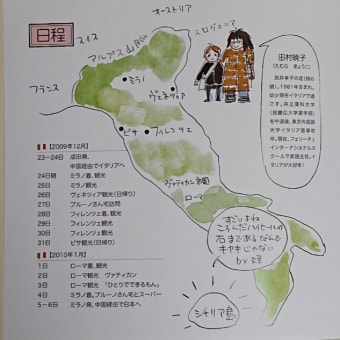 日程
オーストリア
スイス
スロヴェニア
アルプス山脈
フランス
ミラノ
ヴェネツィア
ピサ
フィレンツェ
ヴァティカン市国
ローマ
田村暁子
（たむら きょうこ）
筒井幸子の姪（姉の
娘）。1981年生まれ。
幼少期をイタリアで過
【2009年12月】
23－24日 成田発、
中国経由でイタリアへ
24日朝 ミラノ着、観光
25日 ミラノ観光
26日 ヴェネツィア観光（日帰り）
27日 ブルーノさん宅訪問
28日 フィレンツェ着、観光
29日 フィレンツェ観光
30日 フィレンツェ観光
31日 ピサ観光（日帰り）
【2010年1月】
1日 ローマ着、観光
2日 ローマ観光 ヴァティカン
3日 ローマ観光 「ひとりでできるもん」
4日 ミラノ着。ブルーノさん宅とスーパー
5－6日 ミラノ発、中国経由で日本へ
すごいよね
ころんだハイヒールの
石まであるなんて
キセキじゃない
by 姪
シチリア島